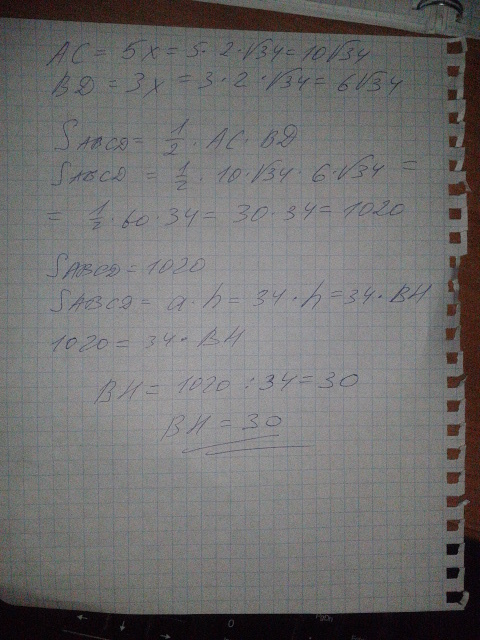 AC = 5x = 5 · 2 · √34 = 10√34
BD = 3x = 3 · 2 · √34 = 6√34
SABCD = 1/2 · AC · BD
SABCD = 1/2 · 10 · √34 · 6 · √34 =
= 1/2 · 60 · 34 = 30 · 34 = 1020
SABCD = 1020
SABCD = a · h = 34 · h = 34 · BH
1020 = 34 · BH
BH = 1020 : 34 = 30
BH = 30